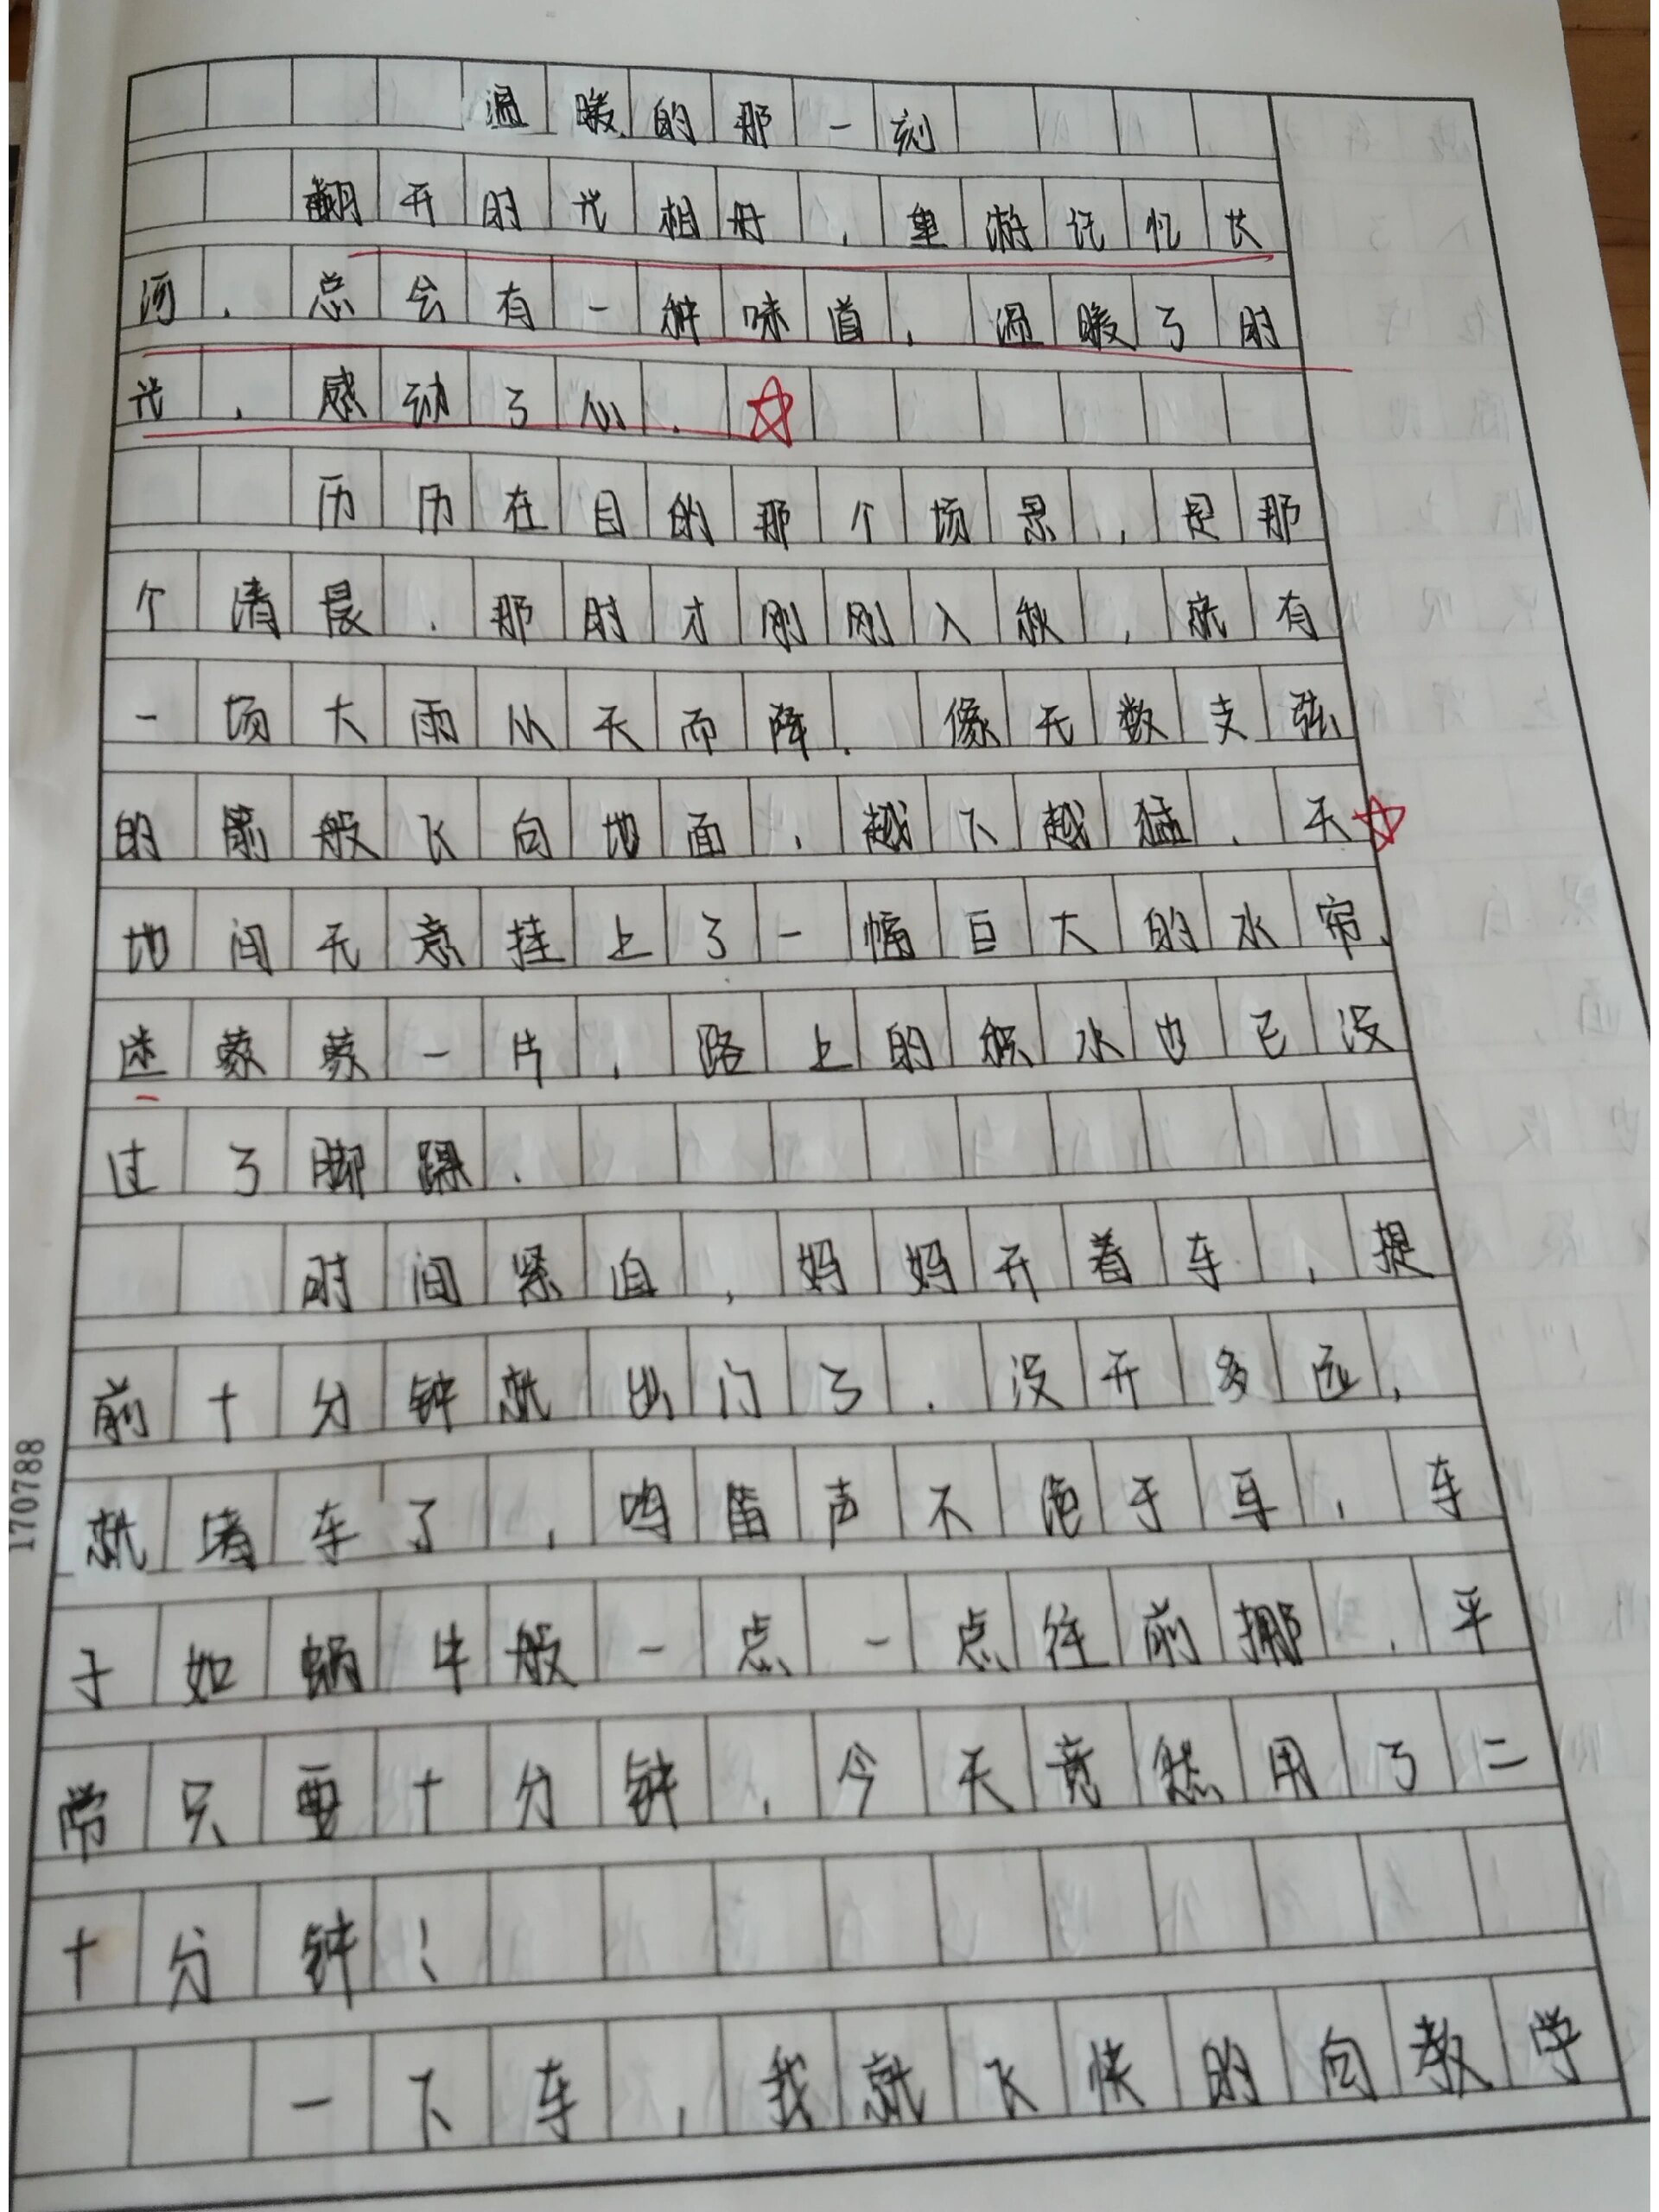 温暖的那一刻
翻开时光相册，重游记忆长
河，总会有一种味道，温暖了时
光，感动了心.
历历在目的那个场景，是那
个清晨.那时才刚刚入秋，就有
一场大雨从天而降.像无数支弦
的箭般飞向地面，越下越猛.天
地间无意挂上了一幅巨大的水帘，
迷蒙蒙一片，路上的积水也已没
过了脚踝.
时间紧迫，妈妈开着车，提
前十分钟就出门了.没开多远，
就堵车了，鸣笛声不绝于耳，车
子如蜗牛般一点一点往前挪.平
常只要十分钟，今天竟然用了二
十分钟！
一下车，我就飞快的向教学
170788